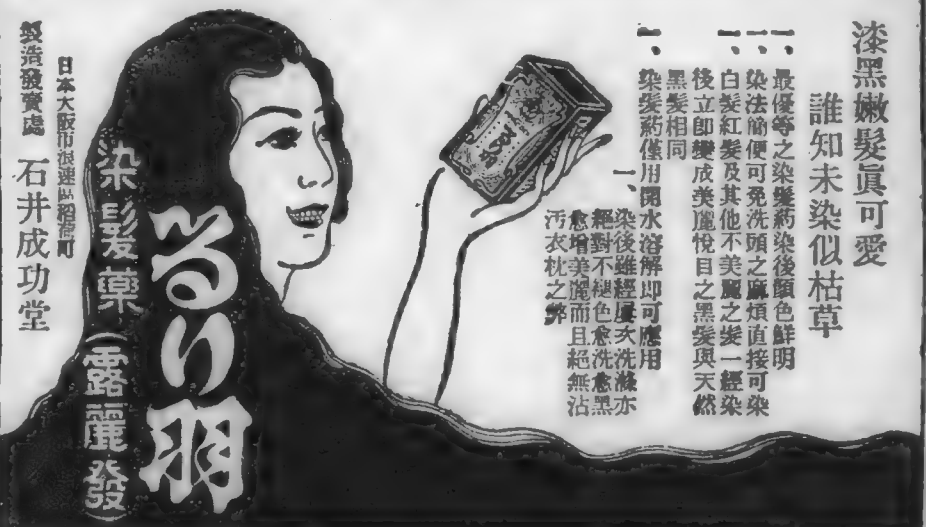 漆黑嫩髮眞可愛
誰知未染似枯草
一、最優等之染髮葯染後顏色鮮明
一、染法簡便可免洗頭之麻煩直接可染
一、白髮紅髮及其他不美麗之髮一經染
後立卽變成美麗悅目之黑髮與天然
黑髮相同
一、染髮葯僅用開水溶解卽可應用
一、染後雖經屢次洗滌亦
絕對不褪色愈洗愈黑
愈增美麗而且絕無沾
污衣枕之弊
るり羽
染髮藥(露麗發)
日本大阪市浪速區稻荷町
製造發賣處 石井成功堂